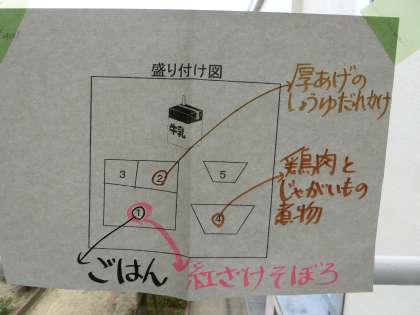 盛り付け図
厚あげの
しょうゆだれかけ
牛乳
3
②
5
鶏肉と
じゃがいもの
煮物
①
④
ごはん
紅ざけそぼろ